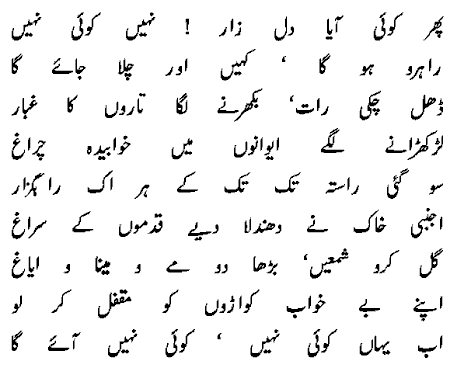 پھر کوئی آیا دل زار ! نہیں کوئی نہیں
راہرو ہو گا ‘ کہیں اور چلا جائے گا
ڈھل چکی رات‘ بکھرنے لگا تاروں کا غبار
لڑکھڑانے لگے ایوانوں میں خوابیدہ چراغ
سو گئی راستہ تک تک کے ہر اک راہگزار
اجنبی خاک نے دھندلا دیے قدموں کے سراغ
گل کرو شمعیں‘ بڑھا دو مے و مینا و ایاغ
اپنے بے خواب کواڑوں کو مقفل کر لو
اب یہاں کوئی نہیں ‘ کوئی نہیں آئے گا